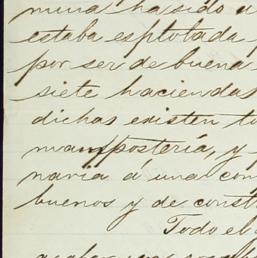 mina ha sido u
estaba esplotada
por ser de buena
siete haciendas
dichas existen to
mampostería, y
naria á una com
buenos y de const
Todo el